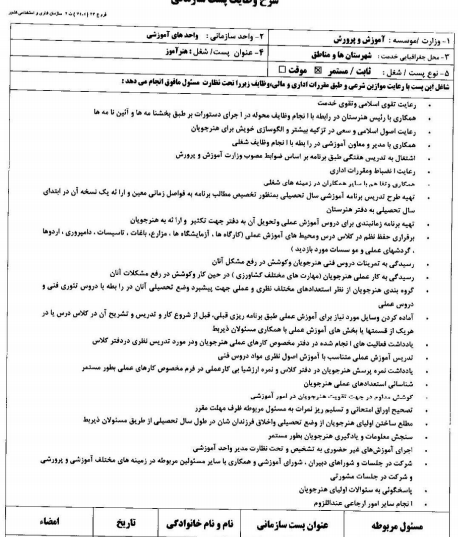 شرح وظایف پست سازمانی
۱- وزارت / موسسه : آموزش و پرورش
۲- واحد سازمانی : واحد های آموزشی
۳- محل جغرافیایی خدمت : شهرستان ها و مناطق
۴- عنوان پست / شغل : هنرآموز
۵- نوع پست / شغل : ثابت / مستمر موقت
شاغل این پست با رعایت موازین شرعی و طبق مقررات اداری و مالی،وظایف زیررا تحت نظارت مسئول مافوق انجام می دهد :
رعایت تقوی اسلامی وتقوی خدمت
همکاری با رئیس هنرستان در رابطه با انجام وظایف محوله در اجرای دستورات بر طبق بخشنامه ها و آئین نامه ها
رعایت اصول اسلامی و سعی در تزکیه بیشتر و الگوسازی خویش برای هنرجویان
همکاری با مدیر و معاون آموزشی در رابطه با انجام وظایف شغلی
اشتغال به تدریس هفتگی طبق برنامه بر اساس ضوابط مصوب وزارت آموزش و پرورش
رعایت انضباط ومقررات اداری
همکاری وتفاهم با سایر همکاران در زمینه های شغلی
تهیه طرح تدریس برنامه آموزشی سال تحصیلی بمنظور تخصیص مطالب برنامه به فواصل زمانی معین و ارائه یک نسخه آن در ابتدای
سال تحصیلی به دفتر هنرستان
تهیه برنامه زمانبندی برای دروس آموزش عملی وتحویل آن به دفتر جهت تکثیر و ارائه به هنرجویان
برقراری حفظ نظم در کلاس درس ومحیط های آموزش عملی (کارگاه ها ، آزمایشگاه ها ، مزارع، باغات ، تاسیسات ، دامپروری ، اردوها
، گردشهای عملی و موسسات مورد بازدید )
رسیدگی به تمرینات دروس فنی هنرجویان وکوشش در رفع مشکل آنان
رسیدگی به کار عملی هنرجویان (مهارت های مختلف کشاورزی ) در حین کار وکوشش در رفع مشکلات آنان
گروه بندی هنرجویان از نظر استعدادهای مختلف نظری و عملی جهت پیشبرد وضع تحصیلی آنان در رابطه با دروس تئوری فنی و
دروس عملی
آماده کردن وسایل مورد نیاز برای آموزش عملی طبق برنامه ریزی قبلی، قبل از شروع کار و تدریس و تشریح آن در کلاس درس یا در
هریک از قسمتها یا بخش های آموزش عملی با همکاری مسئولان ذیربط
یادداشت فعالیت های انجام شده در دفتر مخصوص کارهای عملی هنرجویان ودر مورد تدریس نظری دردفتر کلاس
تدریس آموزش عملی متناسب با آموزش اصول نظری مواد دروس فنی
یادداشت نمره پرسش هنرجویان در دفتر کلاس و نمره ارزشیابی کارعملی در فرم مخصوص کارهای عملی بطور مستمر
شناسائی استعدادهای عملی هنرجویان
کوشش مداوم در جهت تقویت هنرجویان در امور آموزشی
تصحیح اوراق امتحانی و تسلیم ریز نمرات به مسئول مربوطه ظرف مهلت مقرر
مطلع ساختن اولیای هنرجویان از وضع تحصیلی واخلاق فرزندان شان در طول سال تحصیلی از طریق مسئولان ذیربط
سنجش معلومات و یادگیری هنرجویان بطور مستمر
اجرای آموزش‌های غیر حضوری به تشخیص و تحت نظارت مدیر واحد آموزشی
شرکت در جلسات و شوراهای دبیران ، شورای آموزشی و همکاری با سایر مسئولین مربوطه در زمینه های مختلف آموزشی و پرورشی
و شرکت در جلسات مشورتی
پاسخگوئی به سئوالات اولیای هنرجویان
انجام سایر امور ارجاعی عنداللزوم
مسئول مربوطه عنوان پست سازمانی نام و نام خانوادگی تاریخ امضاء